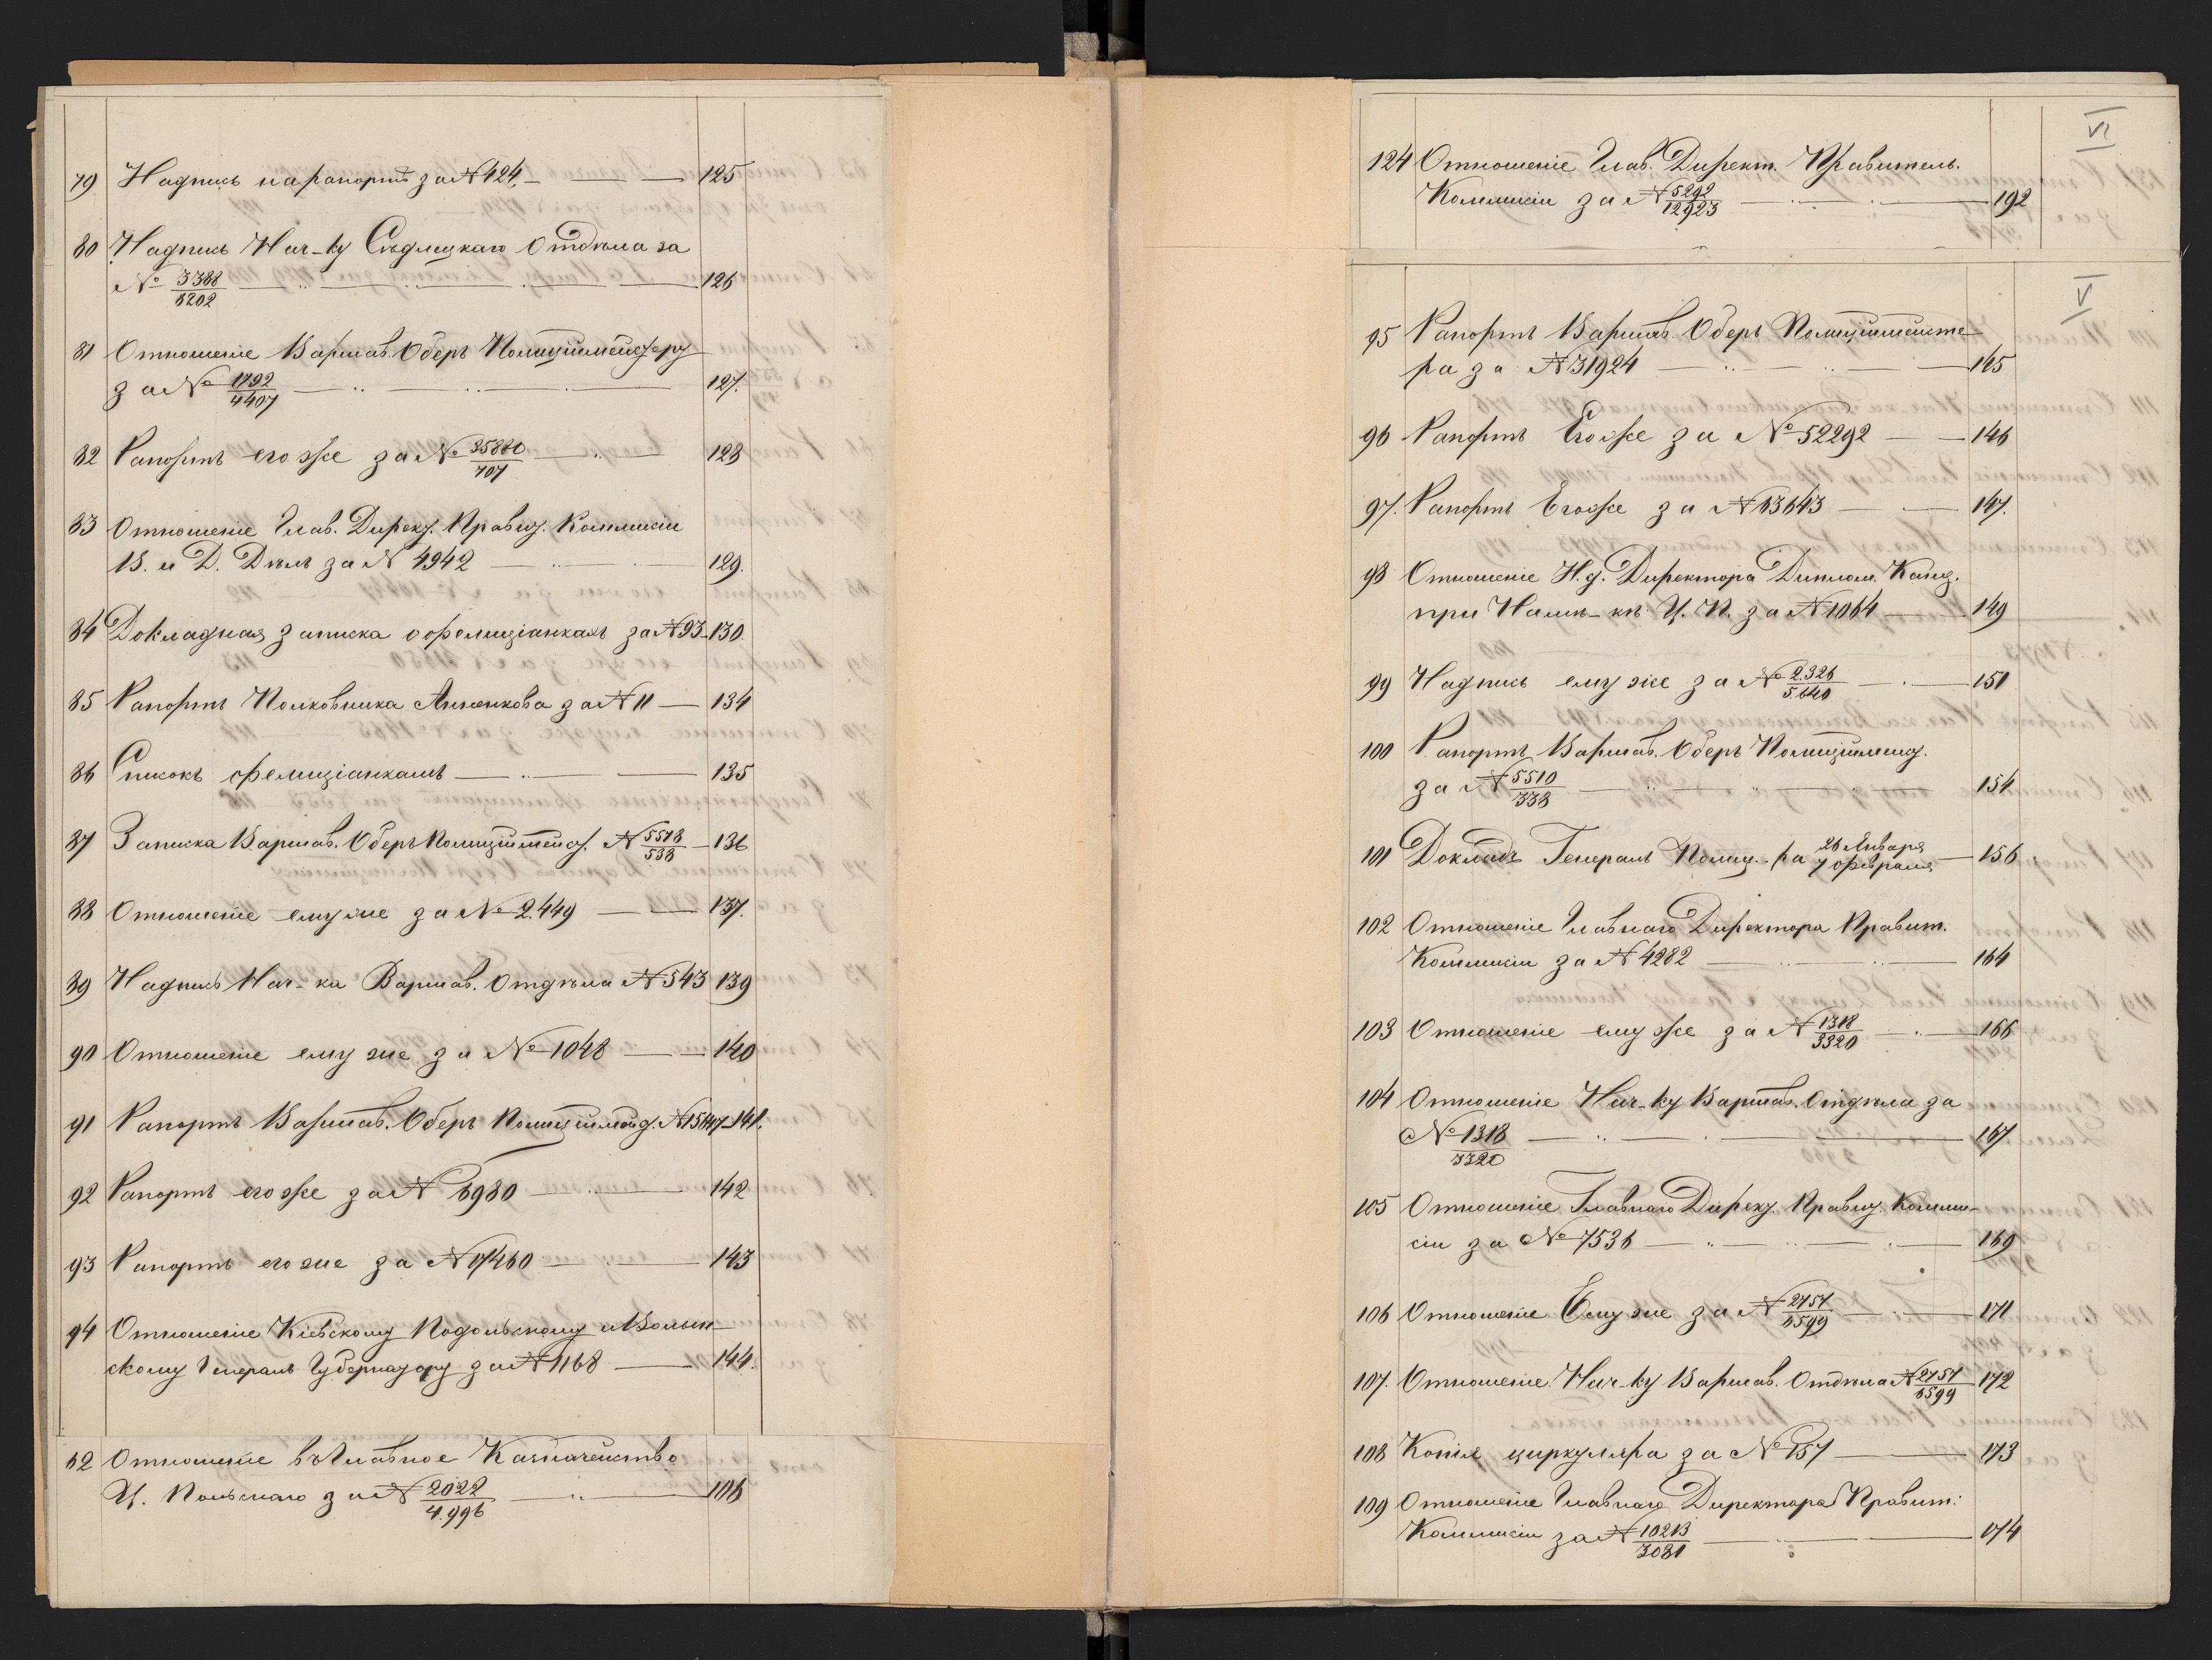 79 Надпись на рапортѣ за № 424. 125
80 Надпись Нач-ку Сѣдлецкаго Отдѣла за
№ 3388/6202 126
81 Отношеніе Варшав. Оберъ Полиціймейстеру
за № 1792/4407 127.
82 Рапортъ его же за № 35880/707 128
83 Отношеніе Глав. Директ. Правит. Коммисіи
В. и Д. Дѣлъ за № 4942 129.
84 Докладная записка о фелиціанкахъ за № 93 130.
85 Рапортъ Полковника Анненкова за № 11 134
86 Списокъ фелиціанкамъ 135
87 Записка Варшав. Оберъ Полиціймейст. № 5518/538 136
88 Отношеніе ему же за № 2.449 137.
89 Надпись Нач-ка Варшав. Отдѣла № 543 139
90 Отношеніе ему же за № 1048 140
91 Рапортъ Варшав. Оберъ Полиціймейст. № 15447 141.
92 Рапортъ его же за № 6980 142
93 Рапортъ его же за № 17460 143
94 Отношеніе Кіевскому Подольскому и Волын-
скому Генералъ Губернатору за № 1168 144.
62 Отношеніе въ Главное Казначейство
Ц. Польскаго за № 2022/4.996 106
VI
124 Отношеніе Глав. Директ. Правитель.
Коммисіи за № 5292/12923 192
V
95 Рапортъ Варшав. Оберъ Полиціймейсте-
ра за № 31924 145
96 Рапортъ Его же за № 52292 146
97. Рапортъ Его же за № 63643 147.
98 Отношеніе И.д. Директора Диплом. Канц.
при Намѣ-кѣ Ц. П. за № 1064 149
99 Надпись ему же за № 2326/5640 151
100 Рапортъ Варшав. Оберъ Полиціймейст.
за № 5510/338 154
101 Докладъ Генералъ Полиц-ра 26 Января/7 февраля 156
102 Отношеніе Главнаго Директора Правит.
Коммисіи за № 4282 164
103 Отношеніе ему же за № 1318/3320 166
104 Отношеніе Нач-ку Варшав. Отдѣла за
№ 1318/3320 167.
105 Отношеніе Главнаго Директ. Правит. Комми-
сіи за № 7536 169
106 Отношеніе Ему же за № 2757/6599 171
107. Отношеніе Нач-ку Варшав. Отдѣла № 2757/6599 172
108 Копія циркуляра за № 157 173
109 Отношеніе Главнаго Директора Правит:
Коммисіи за № 10213/3081 174